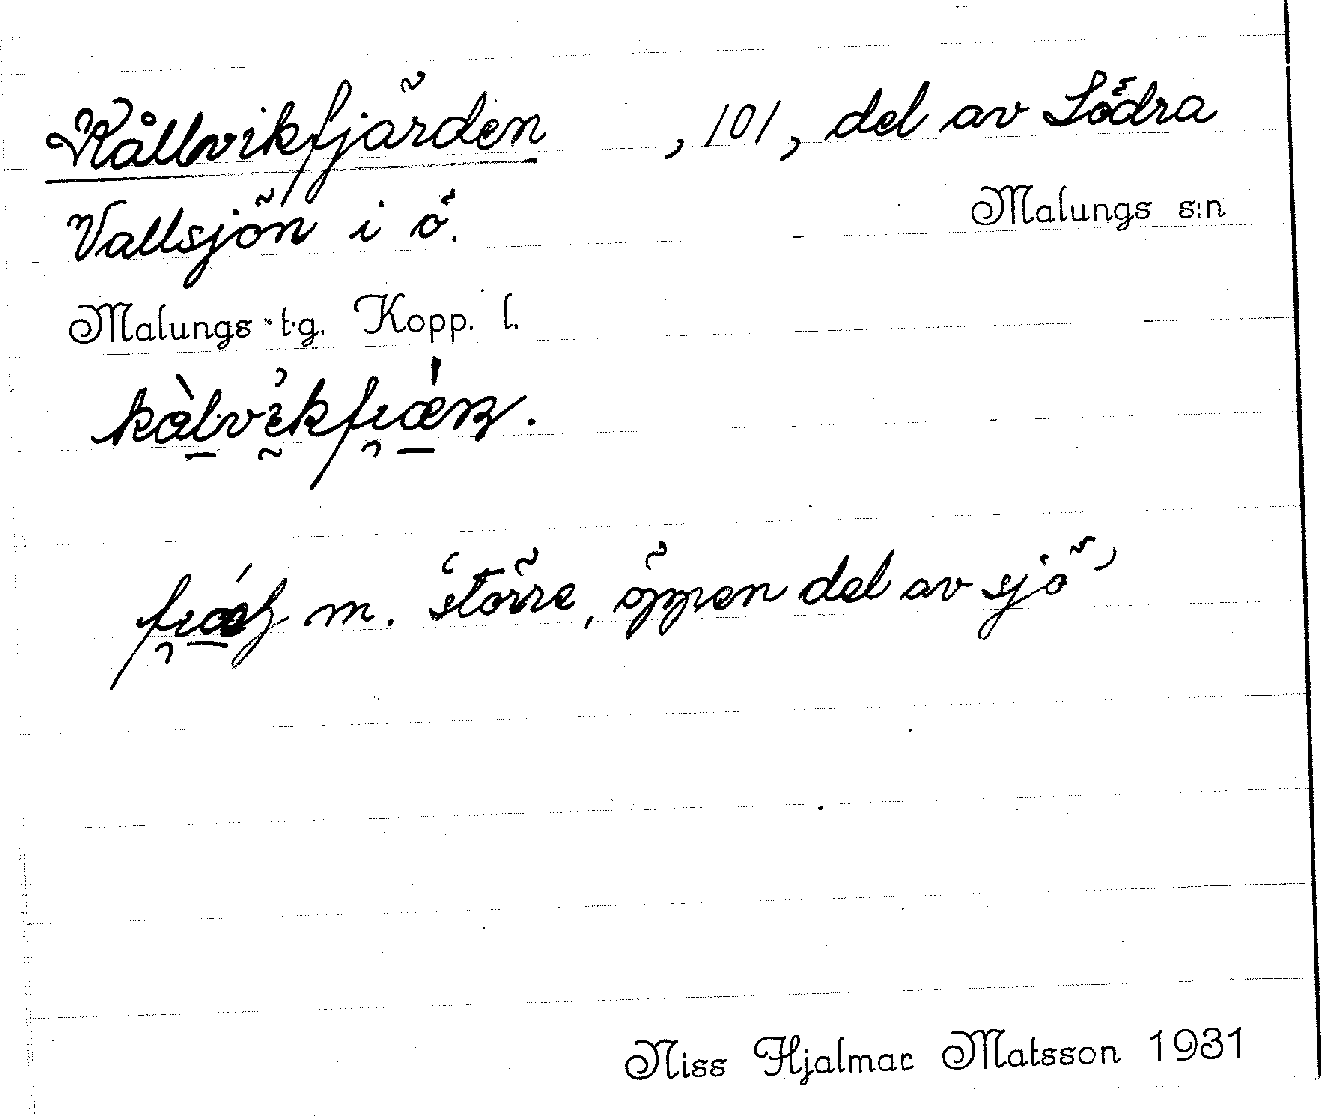 Kållvikfjärden , 101, del av Södra
Vallsjön i ö.
Malungs s:n
Malungs t.g. Kopp. l.
m. 'större, öppen del av sjö'
Niss Hjalmar Matsson 1931